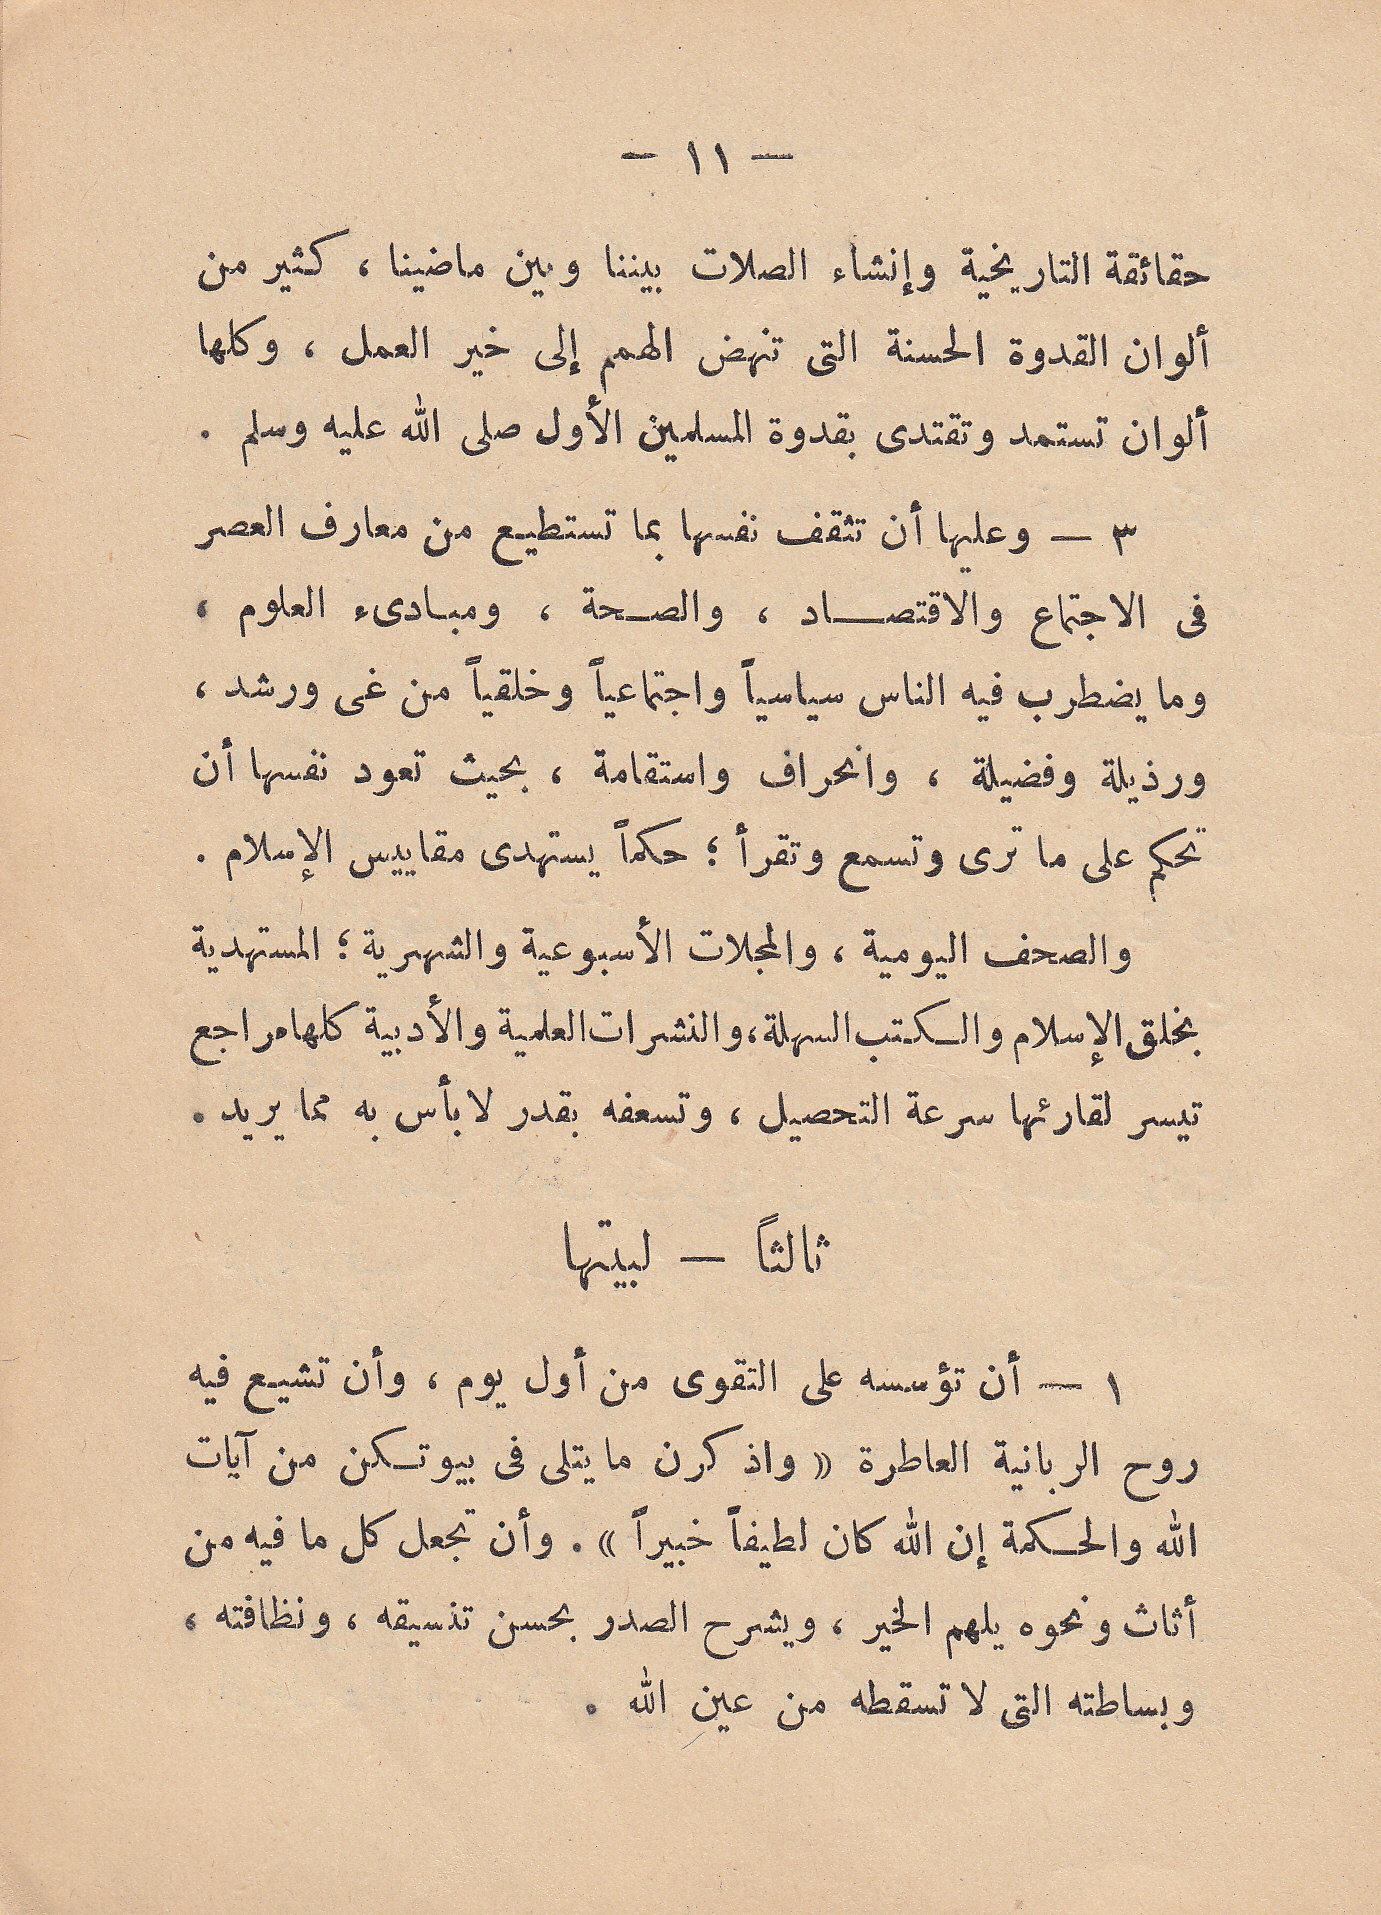 — ١١ —
حقائقة التاريخية وإنشاء الصلات بيننا وبين ماضينا ، كثير من
ألوان القدوة الحسنة التى تنهض الهمم إلى خير العمل ، وكلها
ألوان تستمد وتقتدى بقدوة المسلمين الأول صلى الله عليه وسلم .
٣ — وعليها أن تثقف نفسها بما تستطيع من معارف العصر
فى الاجتماع والاقتصاد ، والصحة ، ومبادىء العلوم ،
وما يضطرب فيه الناس سياسياً واجتماعياً وخلقياً من غى ورشد ،
ورذيلة وفضيلة ، وانحراف واستقامة ، بحيث تعود نفسها أن
تحكم على ما ترى وتسمع وتقرأ ؛ حكماً يستهدى مقاييس الإسلام .
والصحف اليومية ، والمجلات الأسبوعية والشهرية ؛ المستهدية
بخلق الإسلام والكتب السهلة ، والنشرات العلمية والأدبية كلها مراجع
تيسر لقارئها سرعة التحصيل ، وتسعفه بقدر لا بأس به مما يريد .
ثالثاً — لبيتها
١ — أن تؤسسه على التقوى من أول يوم ، وأن تشيع فيه
روح الربانية العاطرة « واذكرن ما يتلى فى بيوتكن من آيات
الله والحكمة إن الله كان لطيفاً خبيراً » . وأن تجعل كل ما فيه من
أثاث ونحوه يلهم الخير ، ويشرح الصدر بحسن تنسيقه ، ونظافته ،
وبساطته التى لا تسقطه من عين الله .